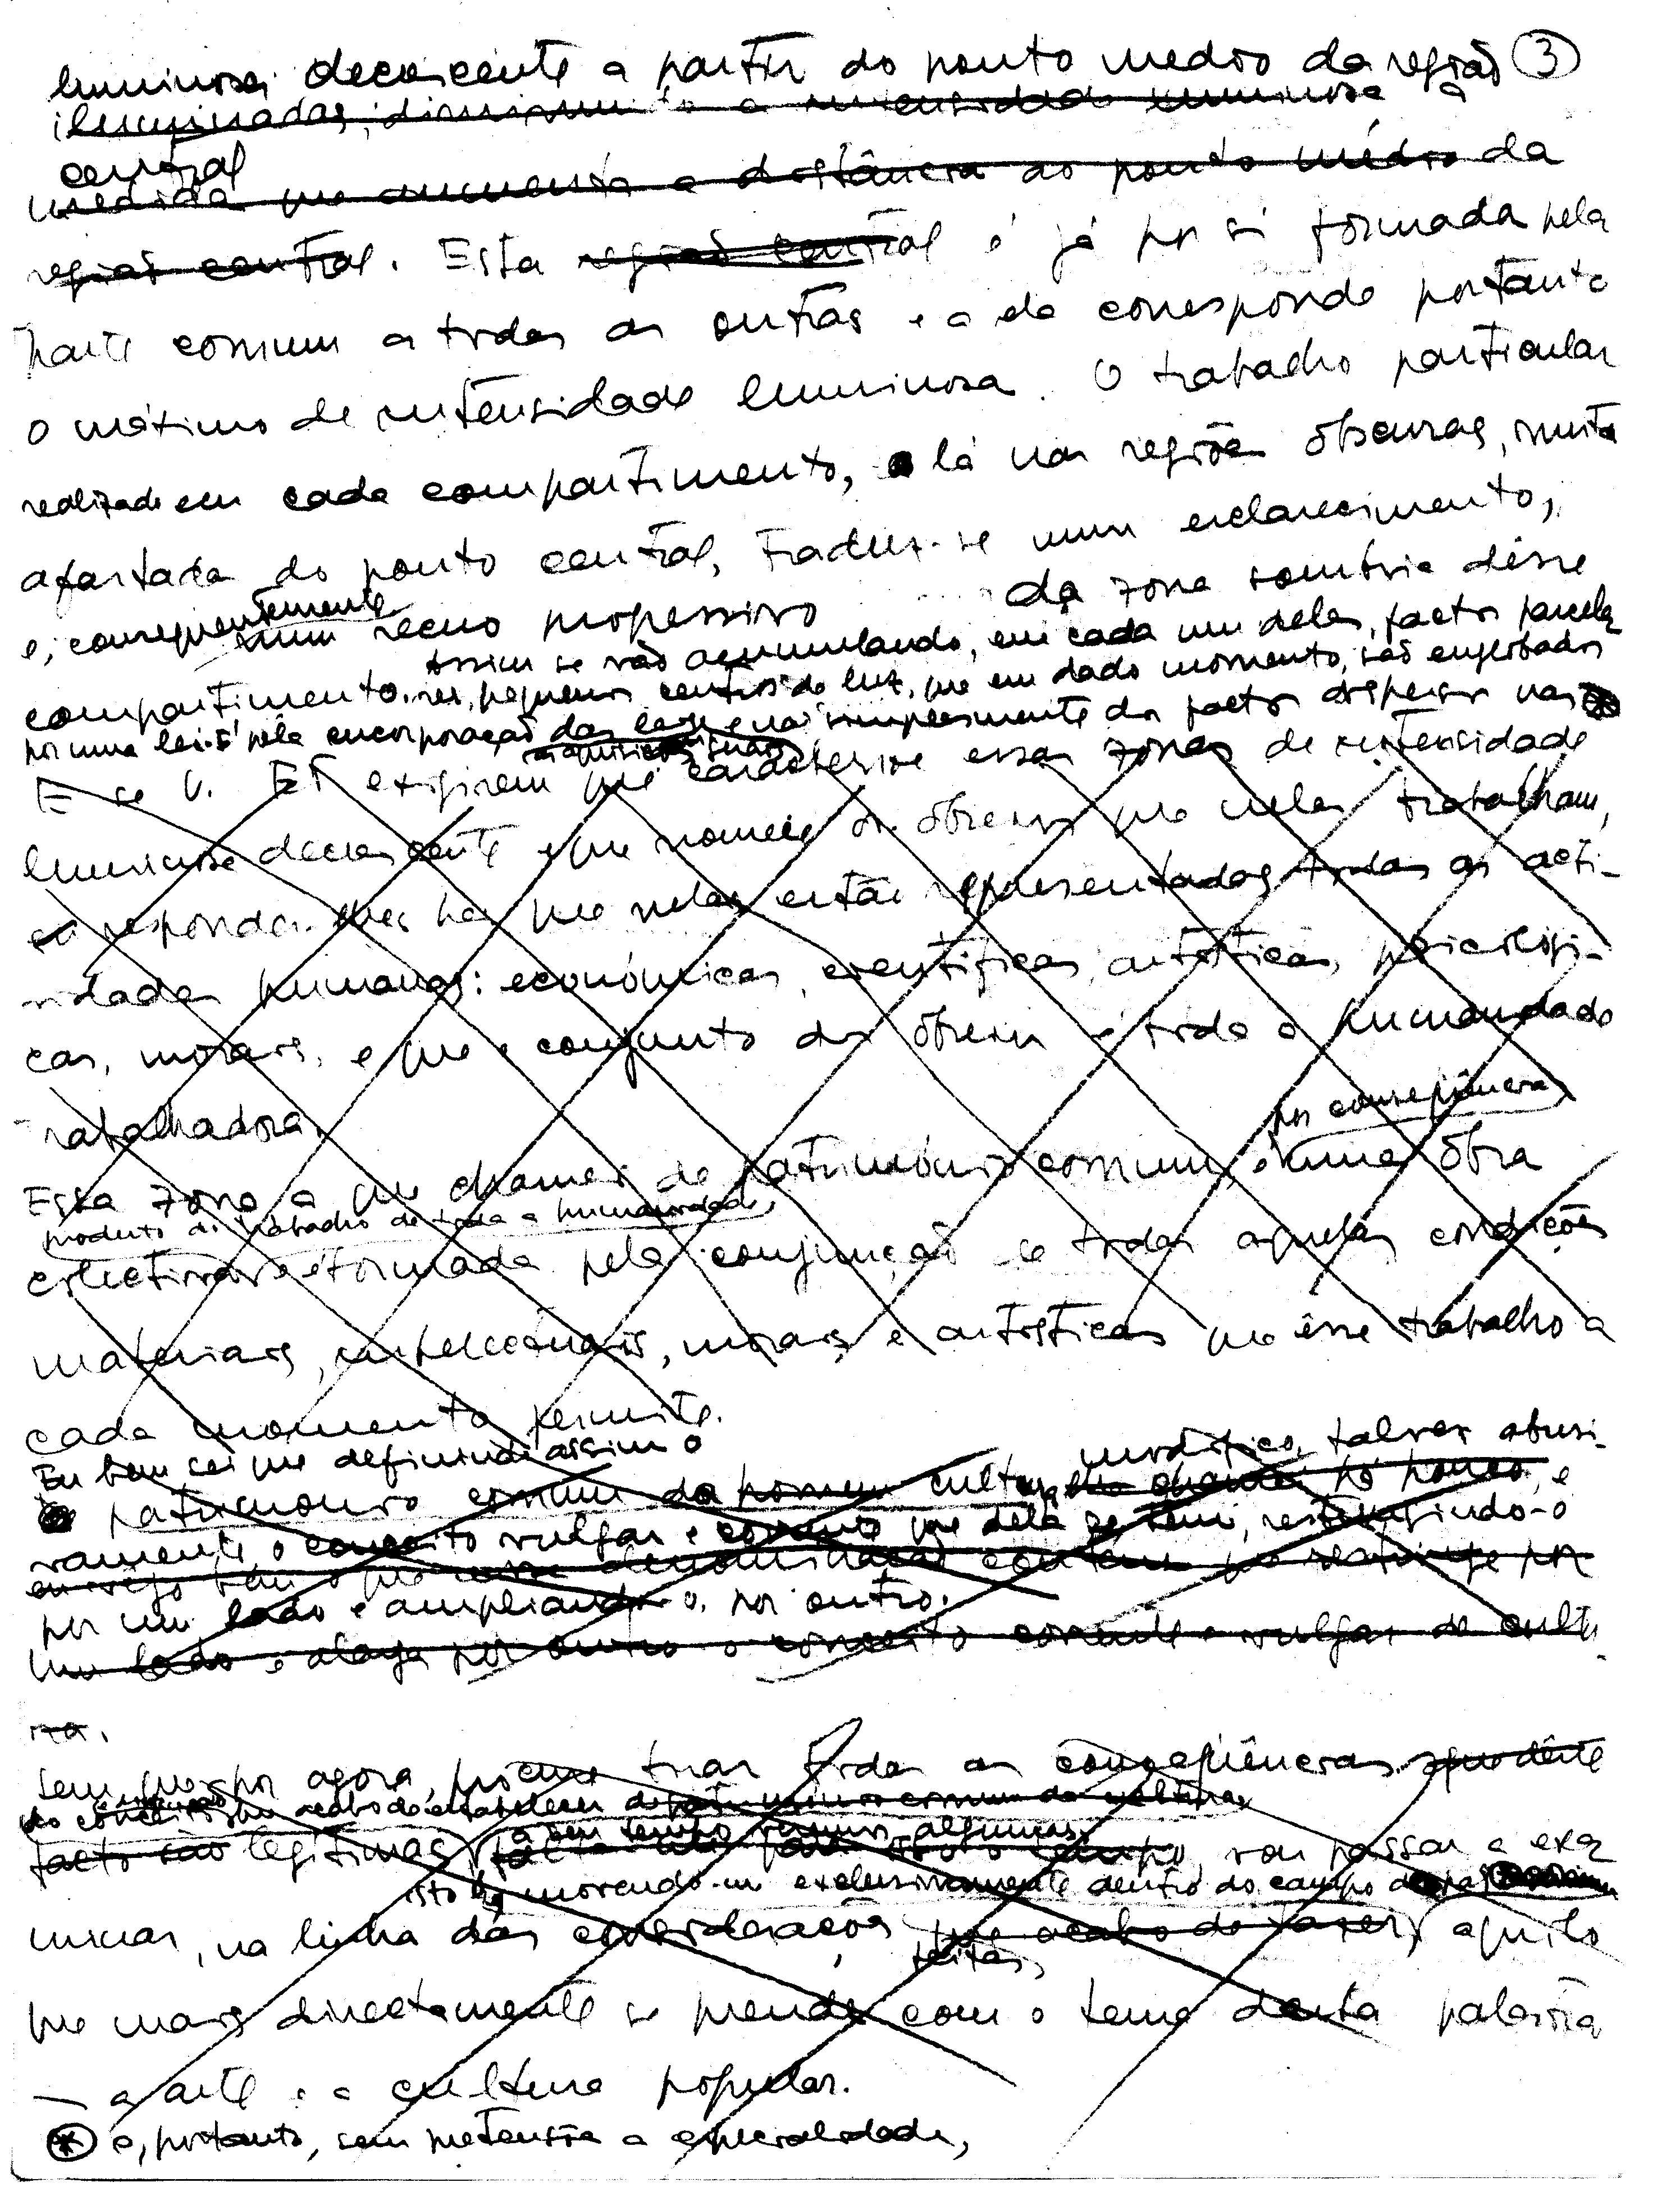 luminosa decrescente a partir do ponto medio da região ③
iluminadas, diminuindo a intensidade luminosa à
central
medida que aumenta a distância ao ponto médio da
região central. Esta região central é já por si formada pela
parte comum a todas as outras e a ela corresponde portanto
o máximo de intensidade luminosa. O trabalho particular
realizado em cada compartimento, lá nas regiões obscuras, muito
afastada do ponto central, traduz-se num esclarecimento,
e, consequentemente
num recuo progressivo da zona sombria dêsse
Assim se vão acumulando, em cada um deles, factos parcela
compartimento. res, pequenos centros de luz, que em dado momento, são englobados
por uma lei. É pela encorporação das leis e não simplesmente dos factos dispersos nas
aquisições
E se V. Ex. exigirem que caracterise essas zonas de intensidade
luminosa decrescente e que nomeie os obreiros que nelas trabalham,
eu responder-lhes hei que nelas estão representadas todas as acti-
vidades humanas: económicas, scientíficas, artísticas, psicológi-
cas, morais, e que o conjunto dos obreiros é toda a humanidade
trabalhadora.
por consequência
Essa zona a que chamei de património comum, é uma obra
produto do trabalho de toda a humanidade,
colectiva e é formada pela conjunção de todas aquelas condições
materiais, intelectuais, morais e artísticas que êsse trabalho a
cada momento permite.
Eu bem sei que definindo assim o modifico, talvez abusi-
património comum da cultura, há pouco, e
vamente, o conceito vulgar e corrente que dela se tem, restringindo-o
eu vejo bem o que essa denominação contém que restringe por
por um lado e ampliando-o, por outro.
um lado e alarga por outro o conceito corrente e vulgar de cultu-
ra.
Sem que, por agora, procure tirar todas as conseqüências que dêste
do conceito que acabo de estabelecer de património comum da cultura,
a seu tempo veremos algumas,
facto são legítimas, vou passar a exa
isto é, movendo-me exclusivamente dentro do campo
minar, na linha das considerações que acabo de fazer, aquilo
feitas,
que mais directamente se prende com o tema desta palestra
— a arte e a cultura popular.
(*) e, portanto, sem pretensões a generalidade,